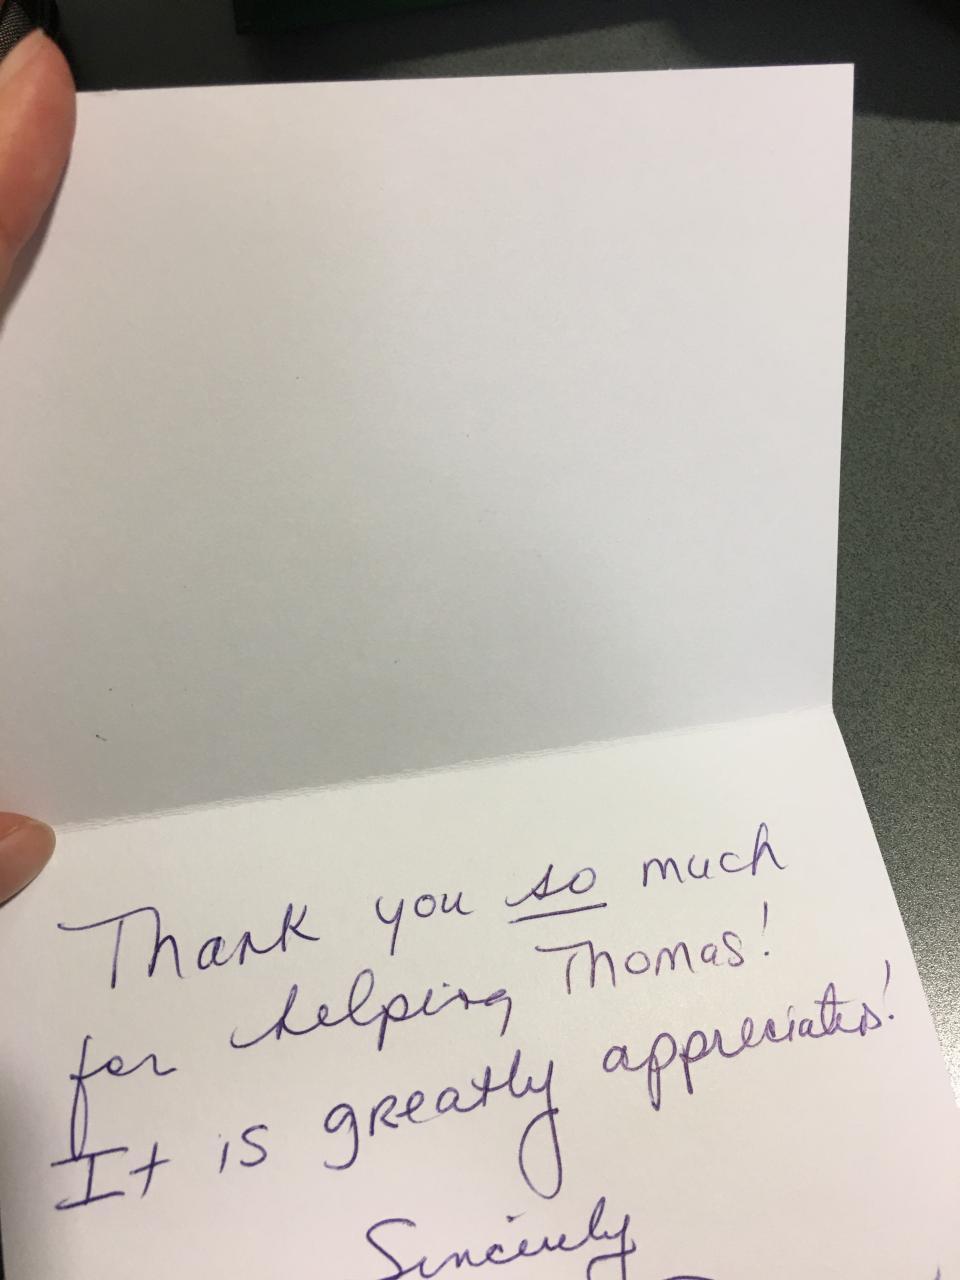 Thank you so much
for helping Thomas!
It is greatly appreciated!
Sincerely